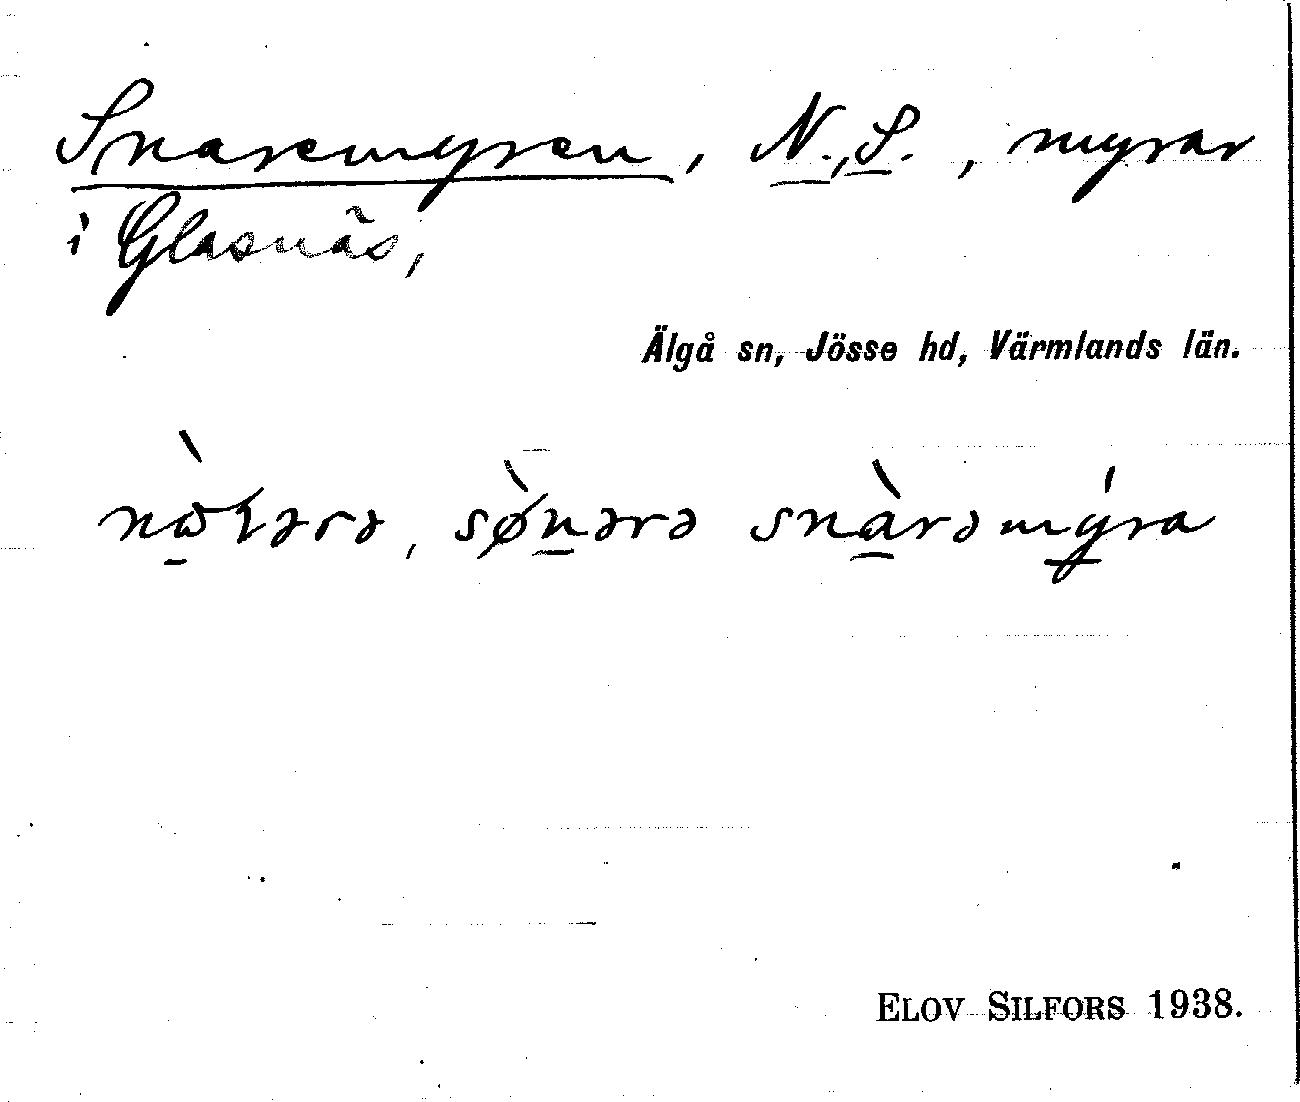 Snaremyren, N., S., myrar
i Glasnäs,
Älgå sn, Jösse hd, Värmlands län.
sø̀nərə snàrəmýra
ELOV SILFORS 1938.